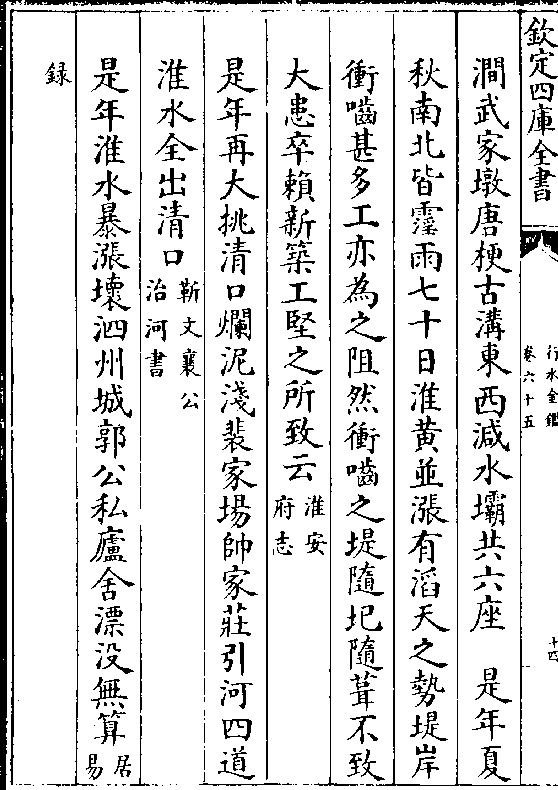 欽定四庫全書
行水金鑑
卷六十五
十四
澗武家墩唐梗古溝東西減水壩共六座　是年夏
秋南北皆霪雨七十日淮黃並漲有滔天之勢堤岸
衝嚙甚多工亦為之阻然衝嚙之堤隨圮隨葺不致
大患卒賴新築工堅之所致云淮安府志
是年再大挑清口爛泥淺裴家場帥家莊引河四道
淮水全出清口靳文襄公治河書
是年淮水暴漲壞泗州城郭公私廬舍漂没無算居易
録